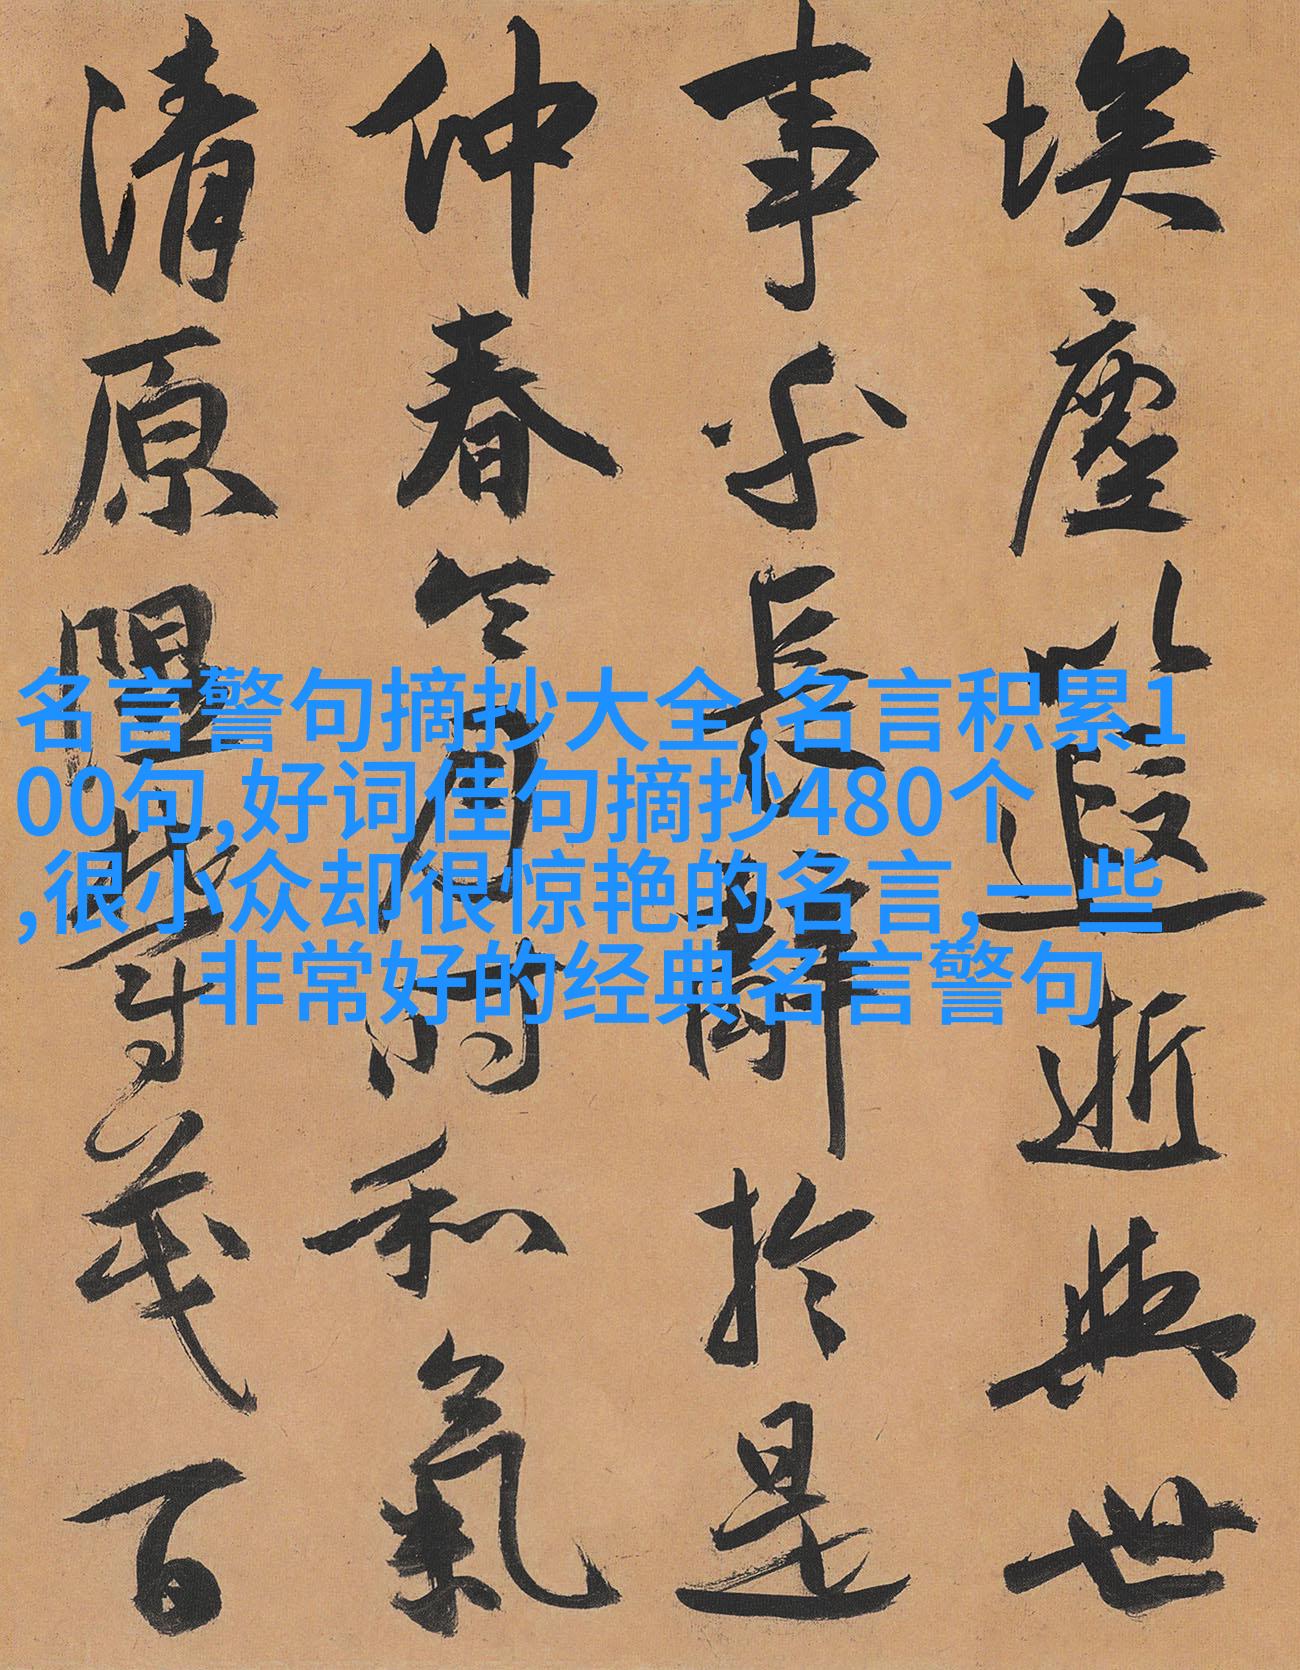 埃塵以遐逝與世
事乎長辭於是
仲春令月時和氣
清原隰鬱茂百
名言警句摘抄大全,名言积累1
00句,好词佳句摘抄480个
,很小众却很惊艳的名言,一些
非常好的经典名言警句